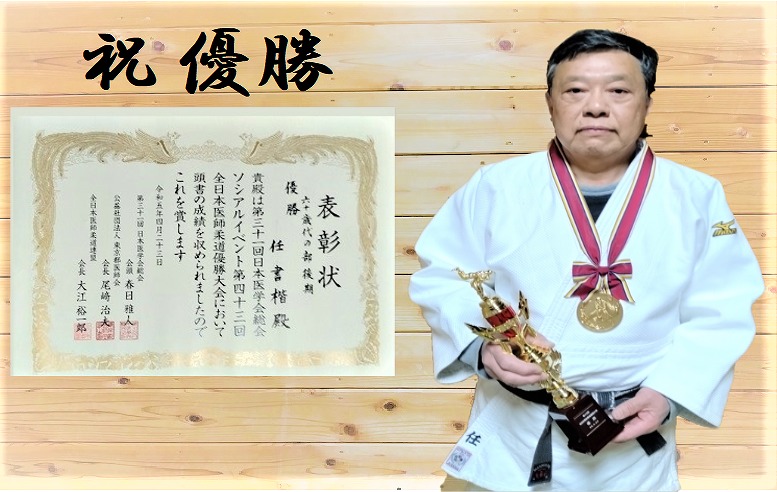 祝 優勝
表彰状
六十歳代の部後期
優勝 任 書楷 殿
貴殿は第三十一回日本医学会総会
ソシアルイベント第四十三回
全日本医師柔道優勝大会において
頭書の成績を収められましたので
これを賞します
令和五年四月二十三日
第三十一回 日本医学会総会
会頭 春日 雅人
公益社団法人 東京都医師会
会長 尾﨑 治夫
全日本医師柔道連盟
会長 大江 裕一郎
任